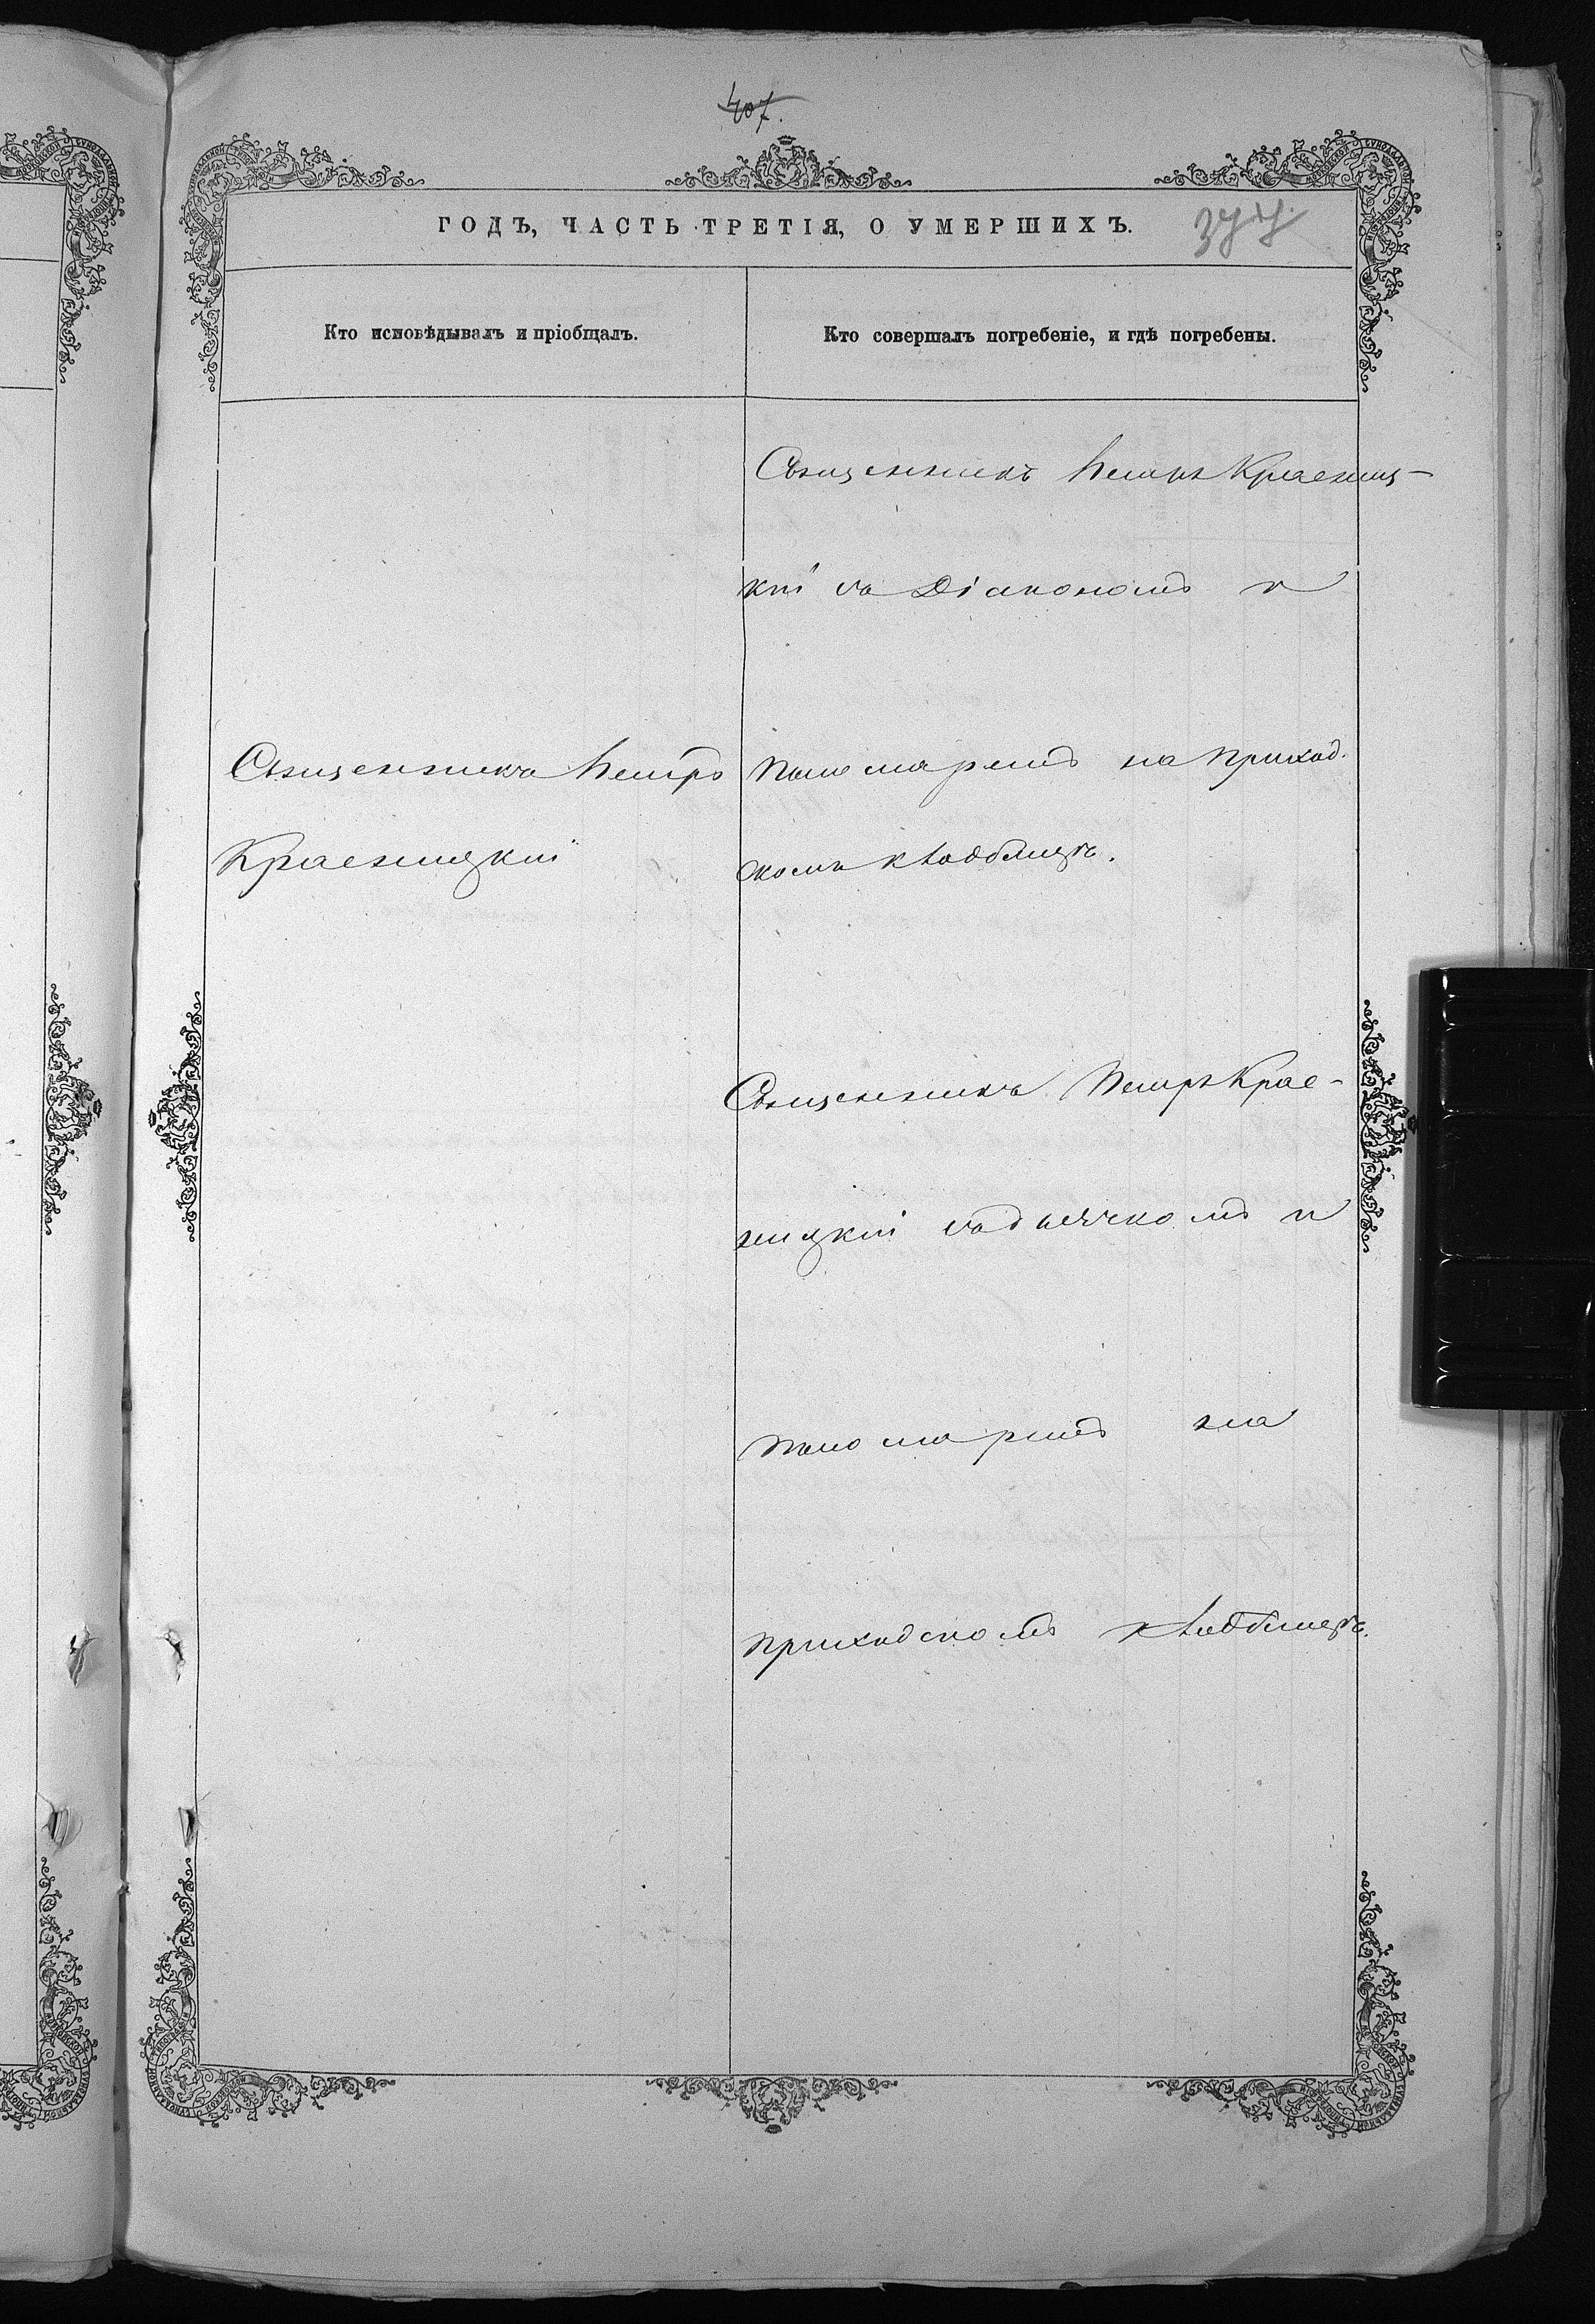 407.
ГОДЪ, ЧАСТЬ ТРЕТІЯ, О УМЕРШИХЪ. 377
Кто исповѣдывалъ и пріобщалъ.
Кто совершалъ погребеніе, и гдѣ погребены.
Священникъ Петръ Красниц-
кій съ Діакономъ и
Священникъ Петръ
Красницкій
Пономаремъ на приход.
скомъ кладбищѣ.
Священникъ Петръ Крас-
ницкій съ дьячкомъ и
Пономаремъ на
приходскомъ кладбищѣ.